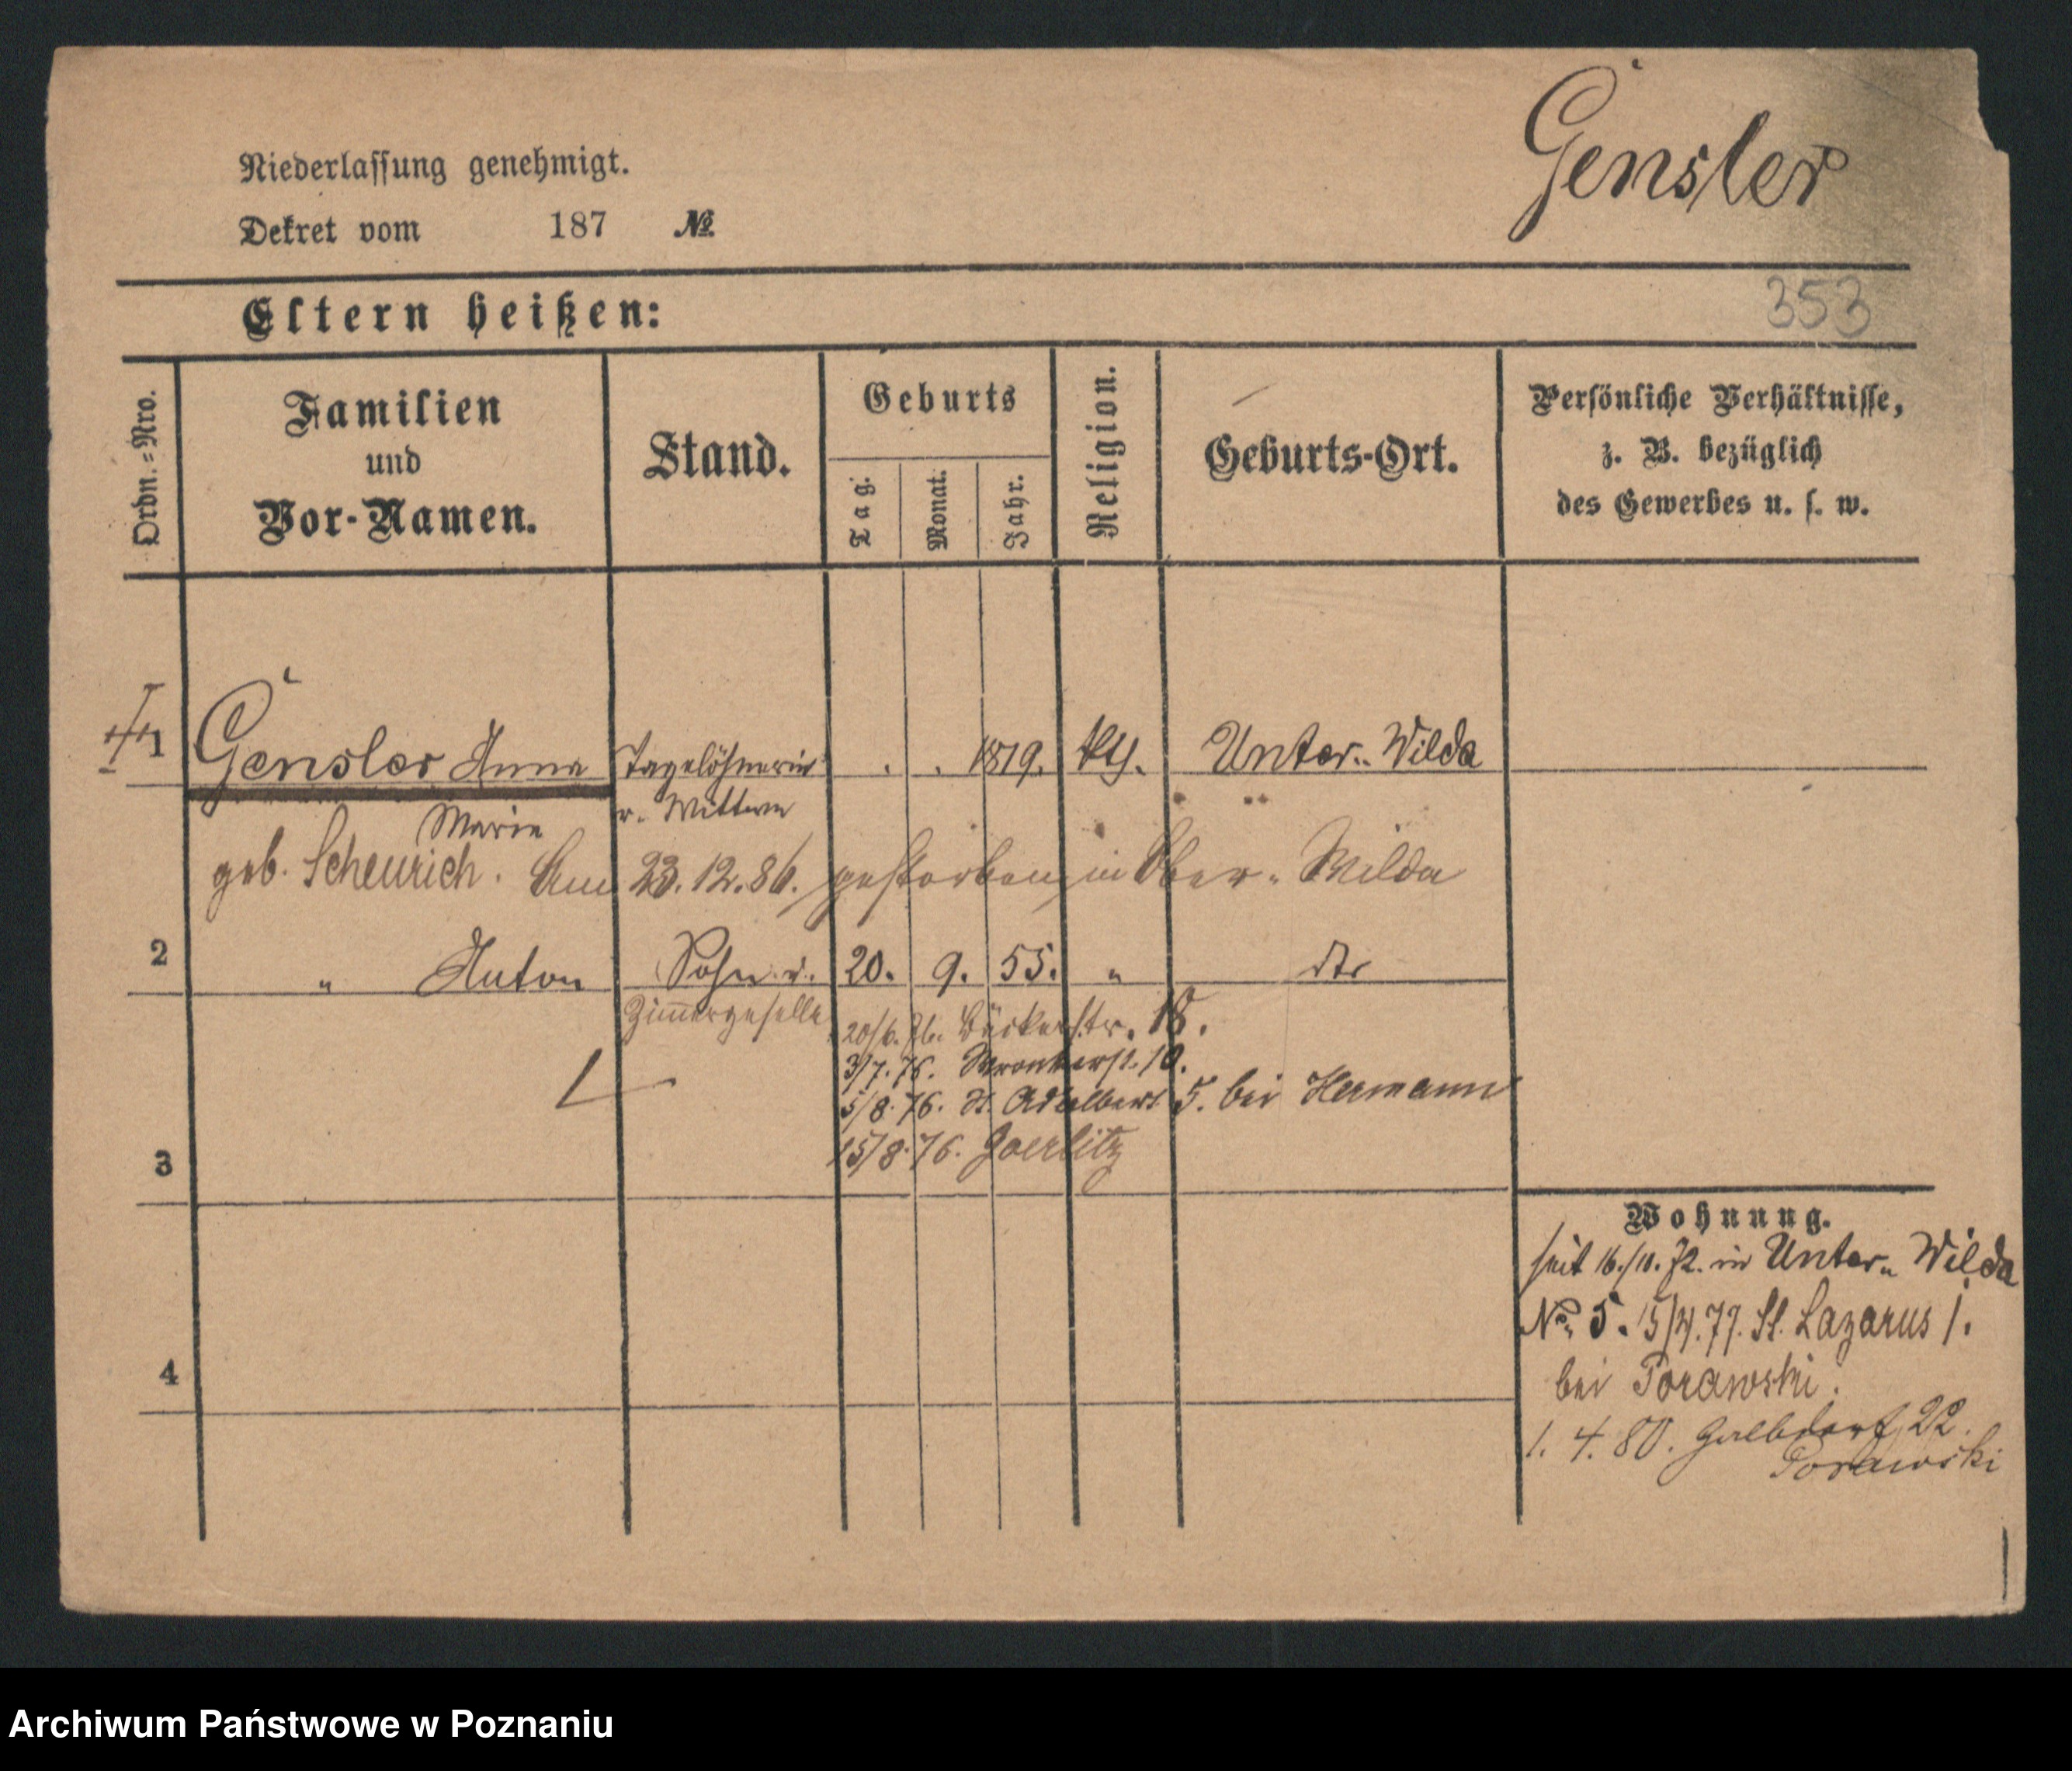 Gensler
Niederlassung genehmigt.
Dekret vom 187 №
353
Eltern heißen:
Ordn.=Nro.
Familien
und
Vor-Namen.
Stand.
Geburts
Tag.
Monat.
Jahr.
Religion.
Geburts-Ort.
Persönliche Verhältnisse,
z. B. bezüglich
des Gewerbes u. s. w.
1 Gensler Anna Tagelöhnerin . . 1819. kth. Unter-Wilda
Marie v. Wittwe
geb. Scheurich. Am 23.12.86. gestorben in Ober-Wilda
2 " Anton Sohn v. 20. 9. 55. " dto
Zimmergeselle
20/6. 76. Bäckerstr. 18.
3/7. 76. Wronkerst. 10.
5/8. 76. St. Adalbert 5. bei Hermann
15/8. 76. Goerlitz
3
Wohnung.
seit 16./10. 72. in Unter-Wilda
No. 5. 15/4. 77. St. Lazarus 1.
bei Porawski.
4
1. 4. 80. 22.
Porawski
Archiwum Państwowe w Poznaniu